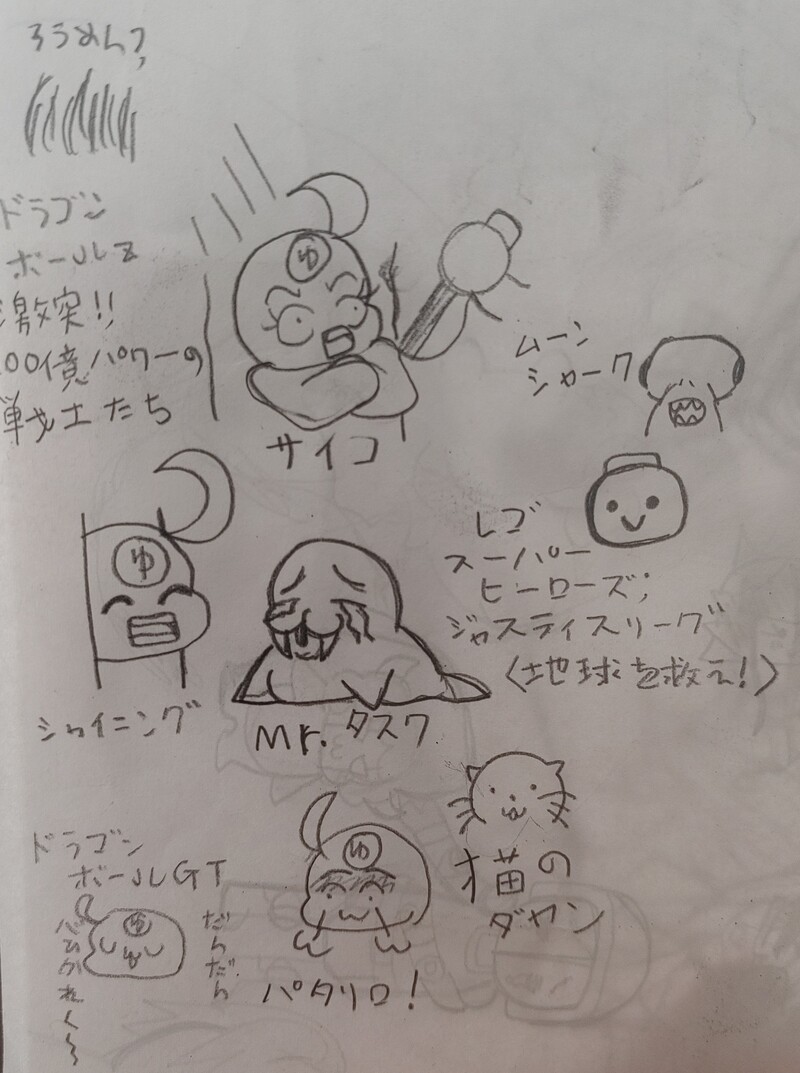 ろうめん?
ドラゴン
ボールZ
激突!!
00億パワーの
戦士たち
ゆ
サイコ
ムーン
シャーク
ゆ
シャイニング
Mr.タスク
レゴ
スーパー
ヒーローズ;
ジャスティスリーグ
〈地球を救え!〉
ドラゴン
ボールGT
ゆ
だんだん
ゆ
パタリロ!
猫の
ダヤン